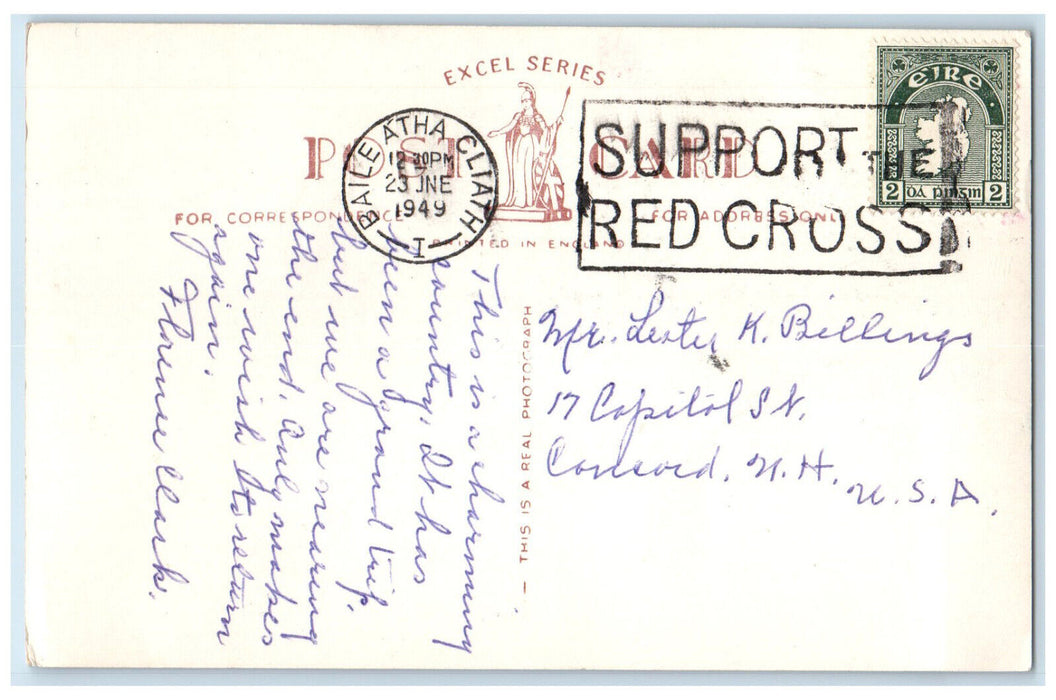 EXCEL SERIES
POST CARD
FOR CORRESPONDENCE
FOR ADDRESS ONLY
PRINTED IN ENGLAND
BAILE ATHA CLIATH
12 30PM
23 JNE
1949
I
SUPPORT THE
RED CROSS
eire
2 Dá pinginn 2
This is a charming
country. It has
been a grand trip,
but we are nearing
the end. Only makes
one wish to return
again.
Florence Clark.
— THIS IS A REAL PHOTOGRAPH
Mr. Lester K. Billings
17 Capitol St.
Concord, N.H.
U.S.A.